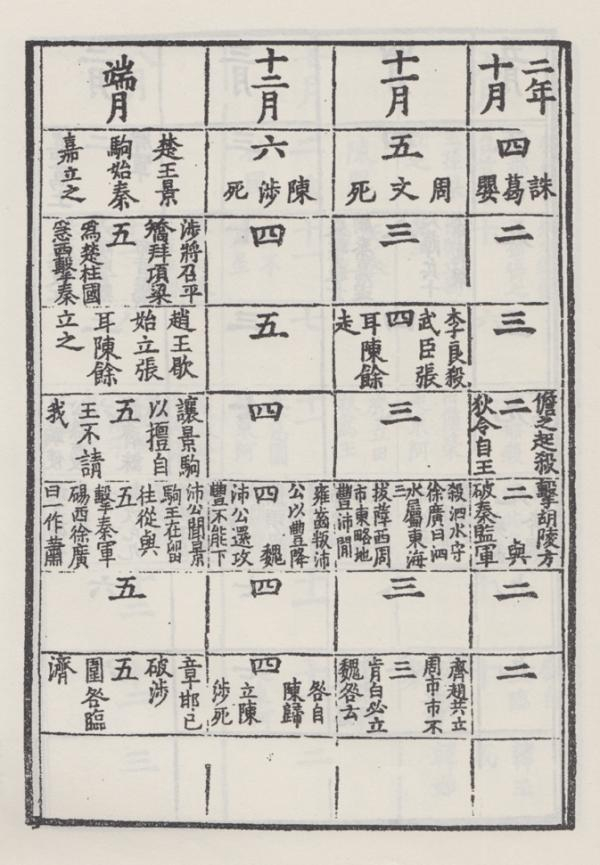 二年
十月
四
誅葛嬰
二
三
儋之起殺
二
狄令自王
擊胡陵方
二與
破秦監軍
二
二
十一月
五
周文死
三
李良殺
武臣張
四
耳陳餘
走
三
殺泗水守
徐廣曰泗
水屬東海
三
拔薛西周
市東略地
豐沛閒
三
齊趙共立
周市市不
三
肯曰必立
魏咎去
十二月
六
陳涉死
四
五
四
雍齒叛沛
公以豐降
四魏
沛公還攻
豐不能下
四
咎自
陳歸
四
立陳
涉死
端月
楚王景
駒始秦
嘉立之
涉將召平
矯拜項梁
五
爲楚柱國
急西擊秦
趙王歇
始立張
耳陳餘
立之
讓景駒
以擅自
五
王不請
我
沛公聞景
駒王在留
往從與
五
擊秦軍
碭西徐廣
曰一作蕭
五
章邯已
破涉
五
圍咎臨
濟